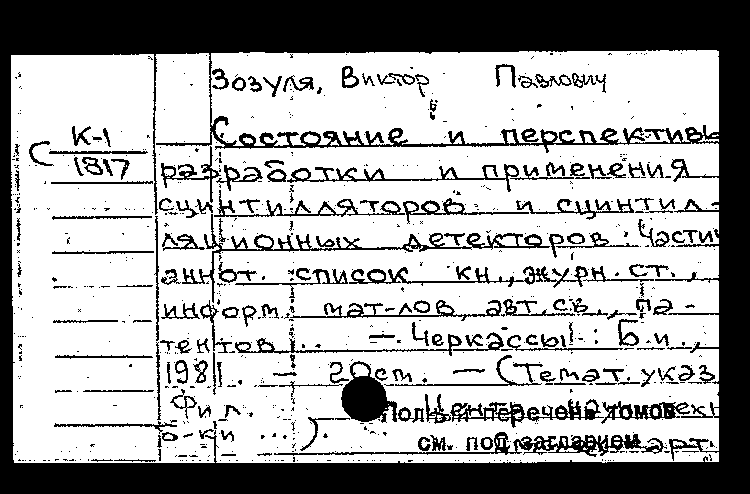 Зозуля, Виктор Павлович
С К-1
1817
Состояние и перспективы
разработки и применения
сцинтилляторов и сцинтил-
ляционных детекторов: Части
аннот. список кн., журн. ст.,
информ. мат-лов, авт. св., па-
тентов... — Черкассы: Б.и.,
1981. — 20 см. — (Темат. указ
Фил.
Полный перечень томов
б-ки ...).
см. под заглавием